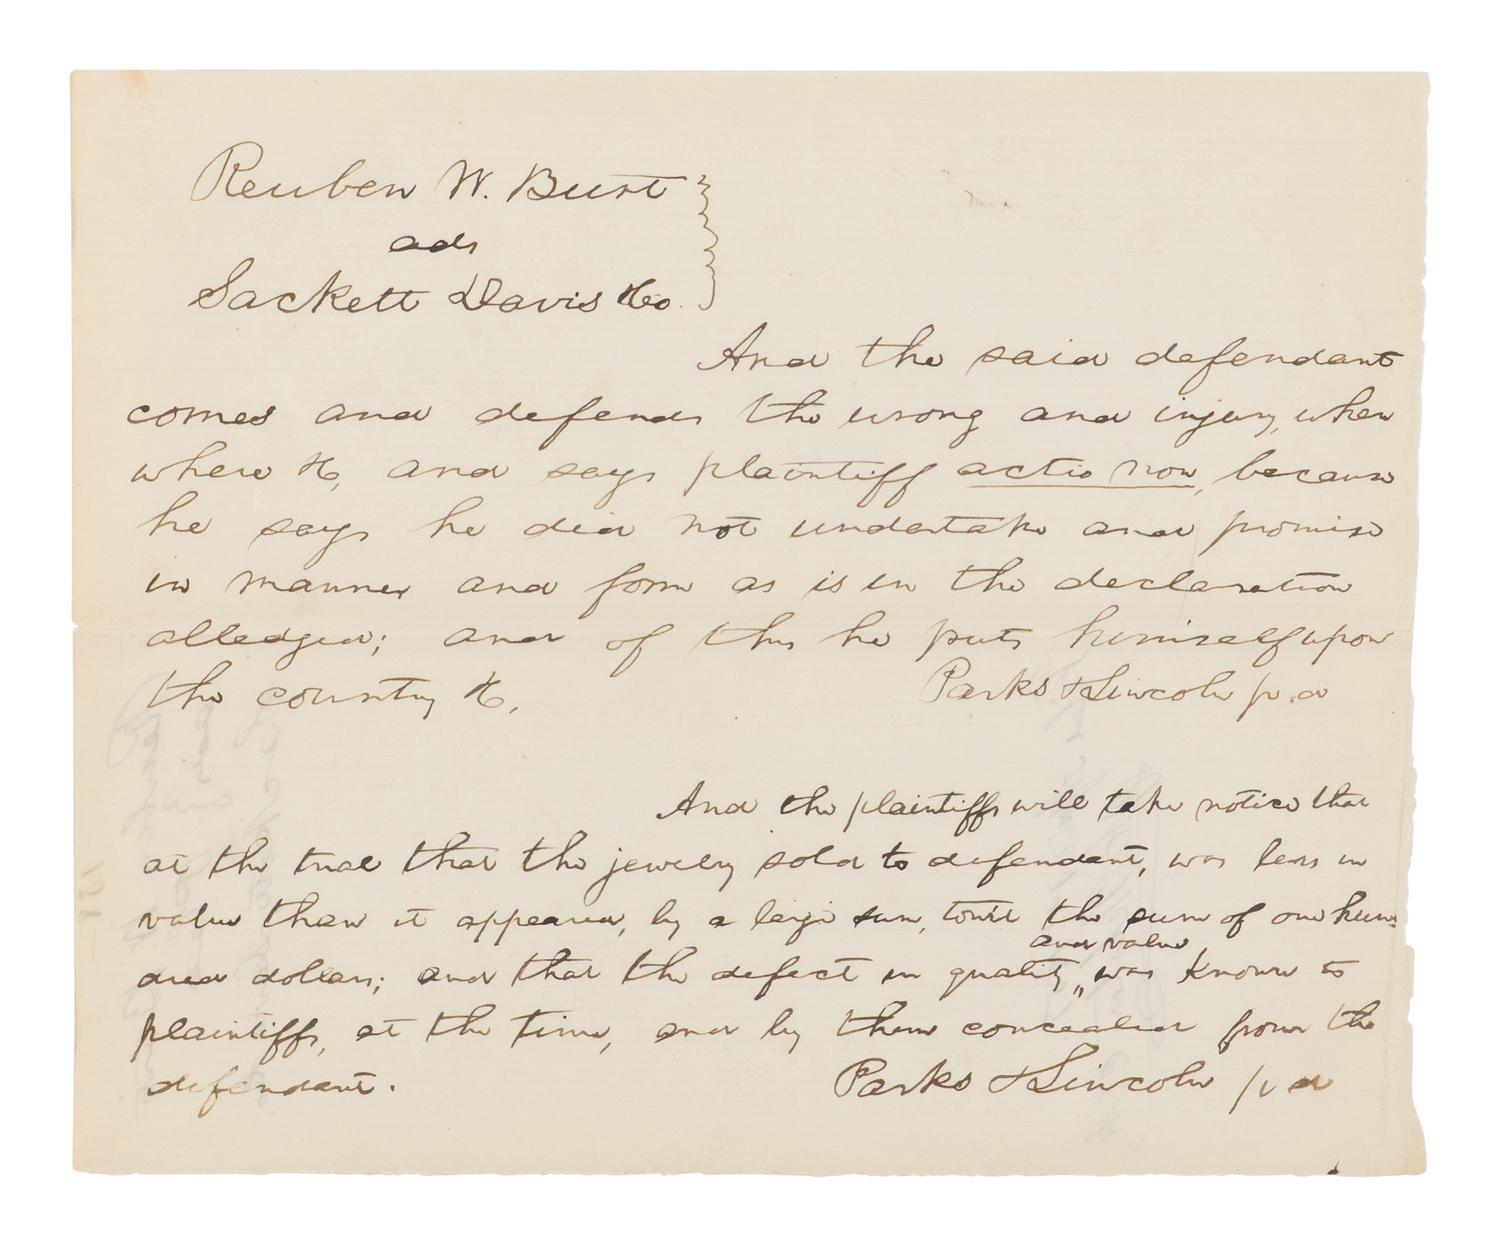 Reuben W. Burt
ads
Sackett Davis &Co.
And the said defendant
comes and defends the wrong and injury, when
where &c, and says plaintiff actio non, because
he says he did not undertake and promise
in manner and form as is in the declaration
alledged; and of this he puts himself upon
the country &c,
Parks & Lincoln p.d
And the plaintiffs will take notice that
at the trial that the jewelry sold to defendant, was less in
value than it appeared, by a large sum, towit the sum of one hun-
and value
dred dollars; and that the defect in quality " was known to
plaintiffs, at the time, and by them concealed from the
defendant.
Parks & Lincoln p d